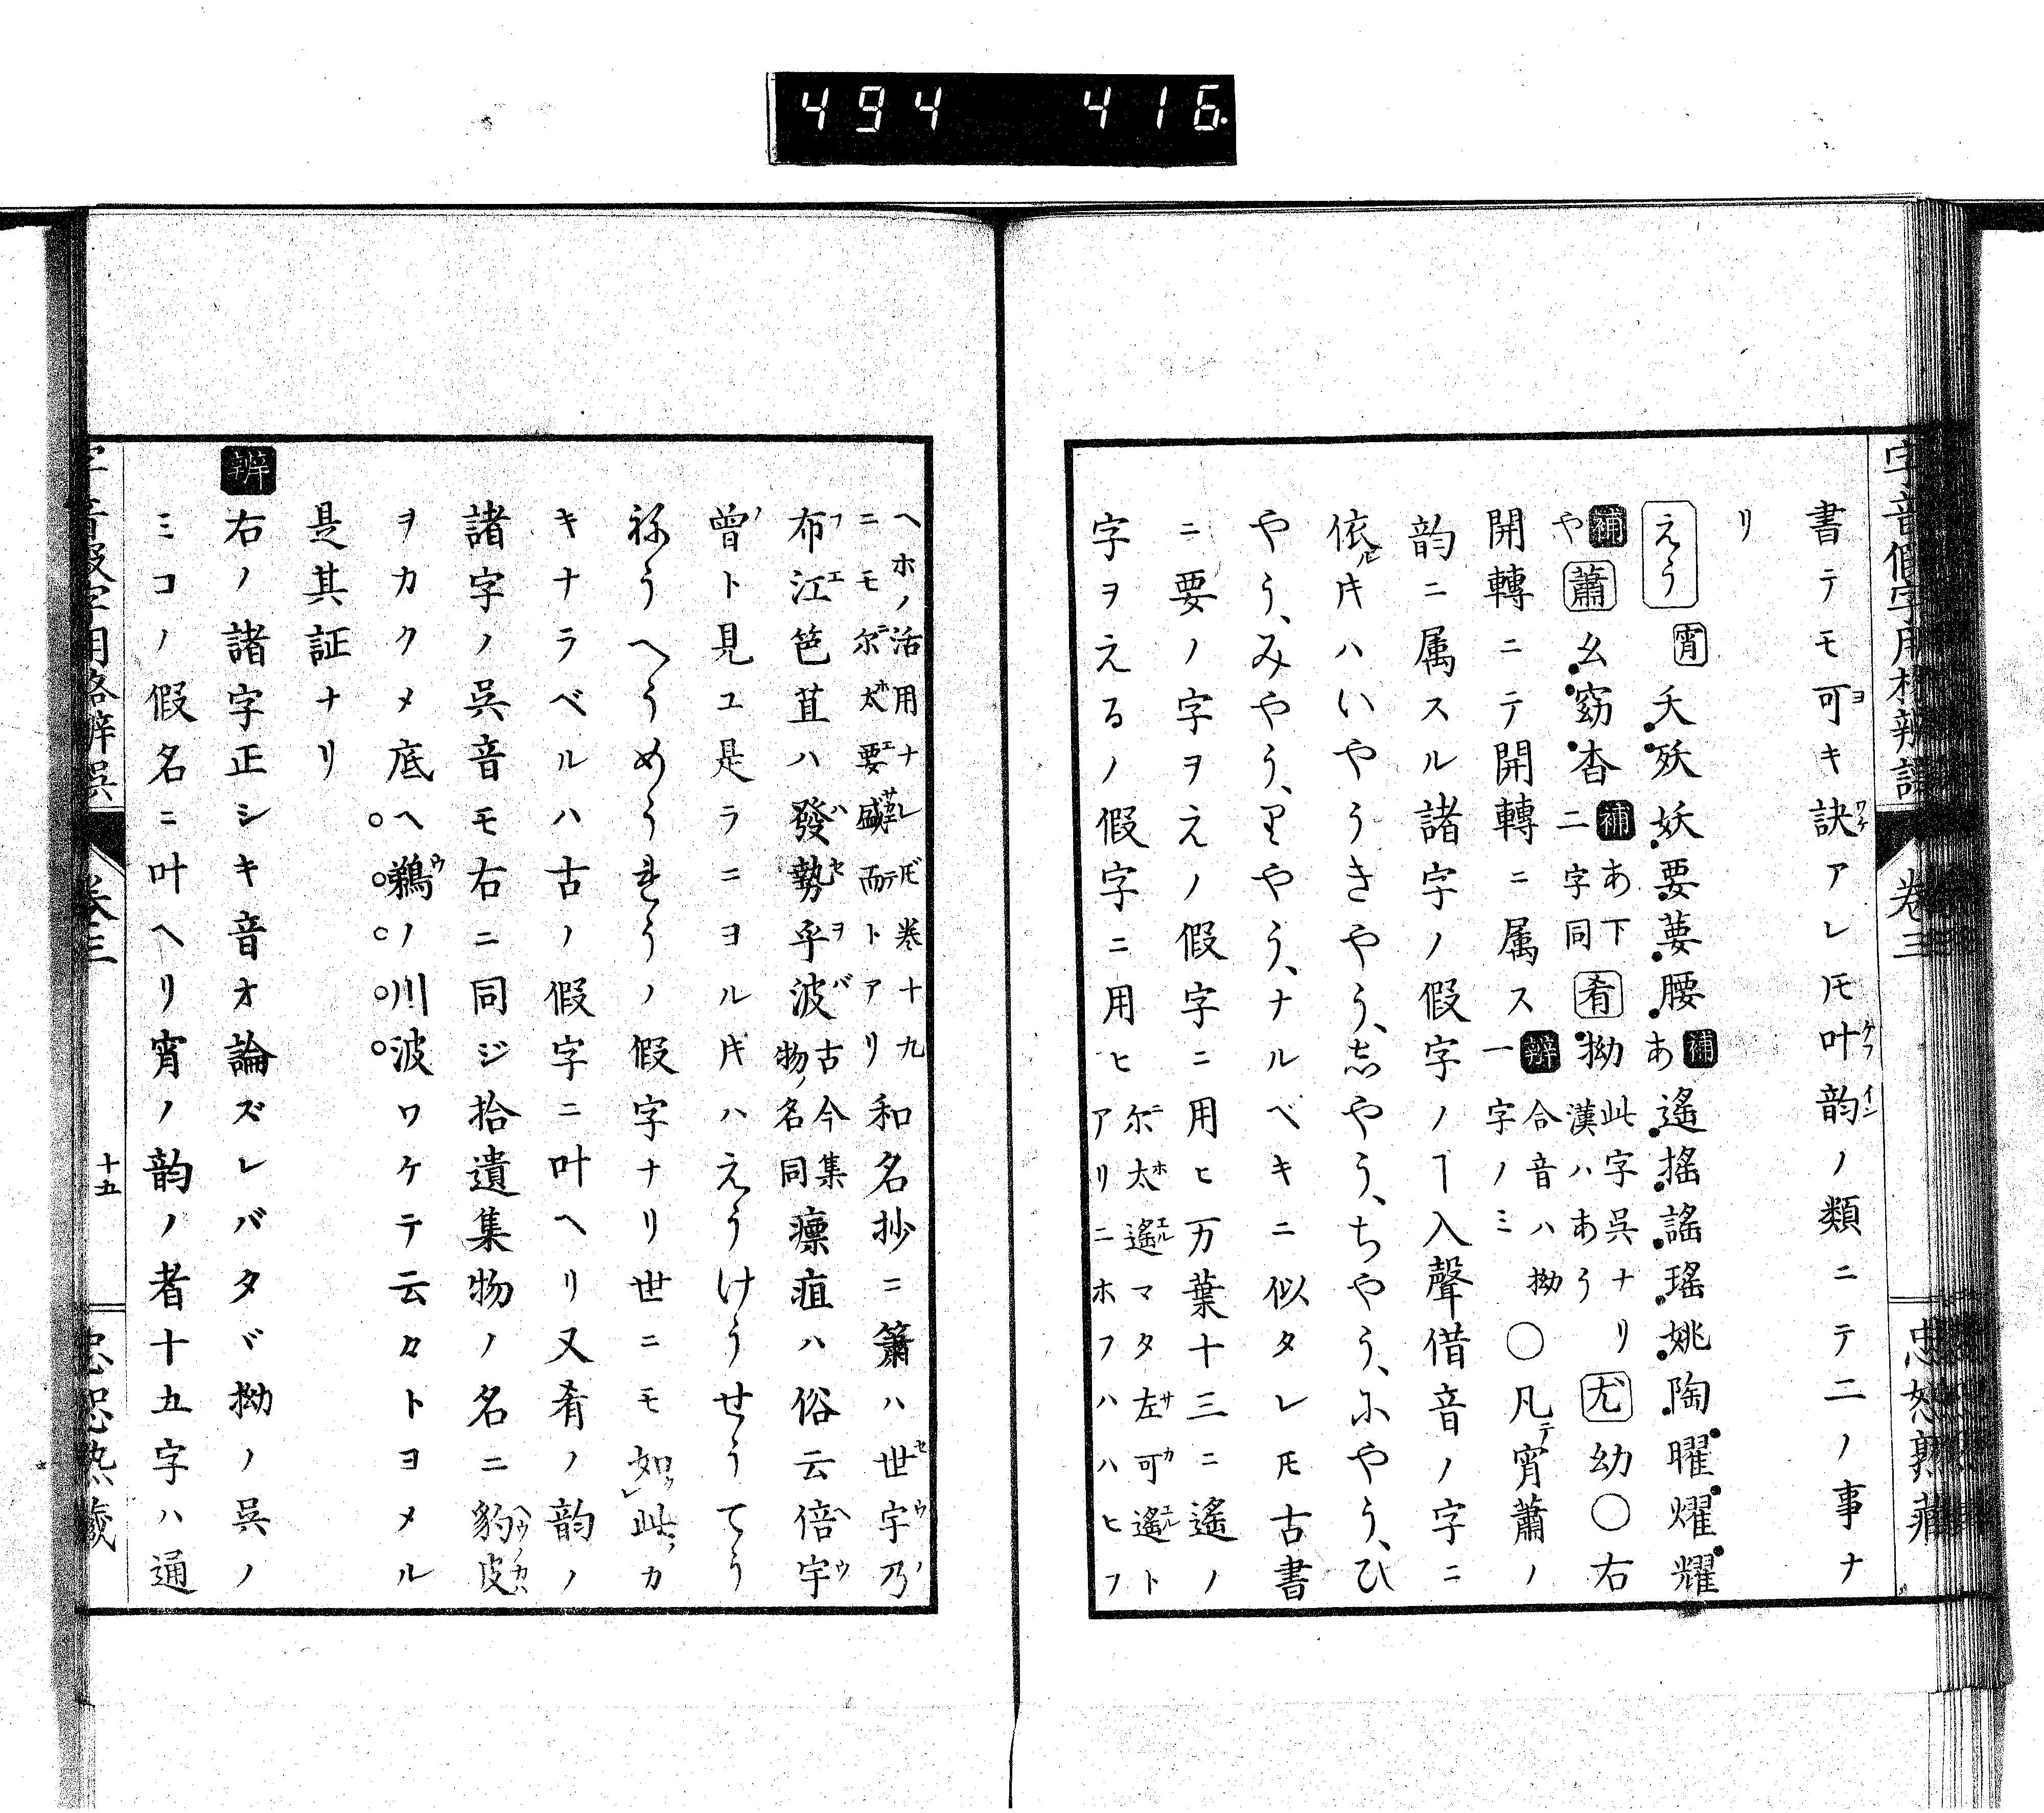 494 416.
字音假字用格辨誤 卷三 忠恕塾藏
書テモ可キ訣アレ𪜈叶韵ノ類ニテ二ノ事ナ
リ
えう 宵 夭殀妖要葽腰 補あ 遙搖謠瑤姚陶曜燿耀
補や 蕭 幺窈杳 補あ下二字同 肴 拗 此字呉ナリ漢ハあう 尤 幼〇右
開轉ニテ開轉ニ属ス 辨 合音ハ拗一字ノミ 〇凡テ宵蕭ノ
韵ニ属スル諸字ノ假字ノヿ入聲借音ノ字ニ
依ル片ハいやうきやう、志やう、ちやう、にやう、ひ
やう、みやう、りやう、ナルベキニ似タレ𪜈古書
ニ要ノ字ヲえノ假字ニ用ヒ万葉十三ニ遙ノ
字ヲえるノ假字ニ用ヒ 尓太遙マタ左可遙トアリニホフハハヒフ
ヘホノ活用ナレ𪜈巻十九ニモ尓太要盛而トアリ 和名抄ニ簫ハ世宇乃
布江笆苴ハ發勢乎波 古今集物ノ名同 瘭疽ハ俗云倍宇
曾ト見ユ是ラニヨル片ハえうけうせうてう
祢うへうめうれうノ假字ナリ世ニモ如此カ
キナラベルハ古ノ假字ニ叶ヘリ又肴ノ韵ノ
諸字ノ呉音モ右ニ同ジ拾遺集物ノ名ニ豹皮
ヲカクメ底ヘ鵜ノ川波ワケテ云々トヨメル
是其証ナリ
辨 右ノ諸字正シキ音オ論ズレバタヾ拗ノ呉ノ
ミコノ假名ニ叶ヘリ宵ノ韵ノ者十五字ハ通
字音假字用格辨誤 卷三 十五 忠恕塾藏